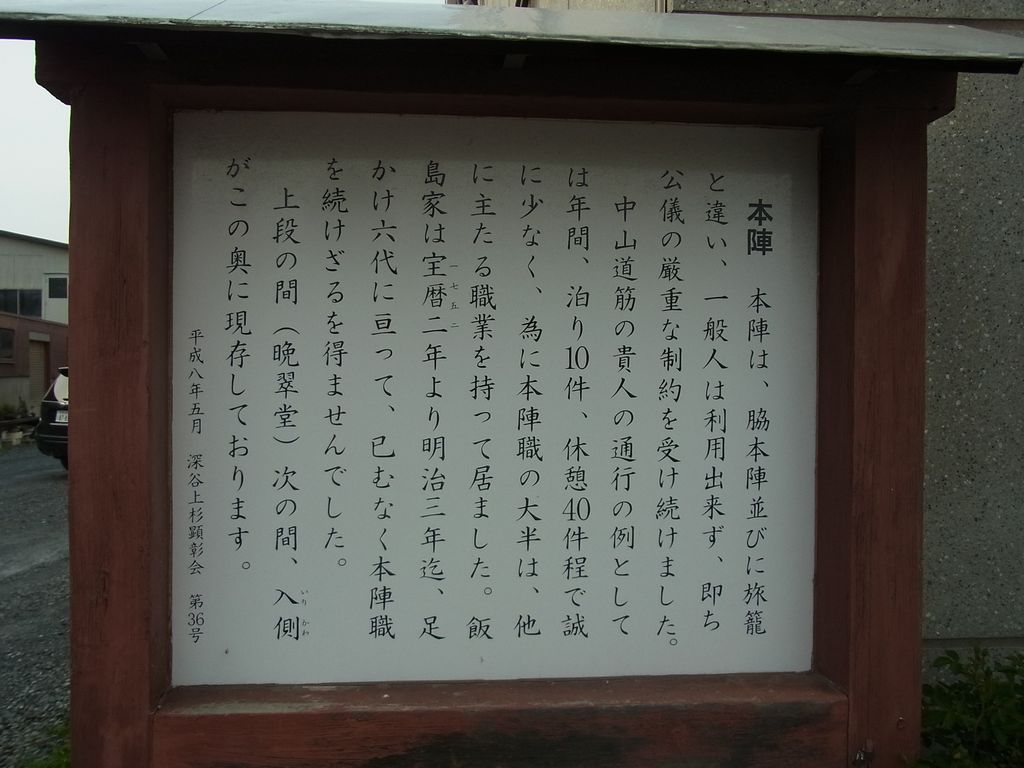 本陣　本陣は、脇本陣並びに旅籠
と違い、一般人は利用出来ず、即ち
公儀の厳重な制約を受け続けました。
中山道筋の貴人の通行の例として
は年間、泊り10件、休憩40件程で誠
に少なく、為に本陣職の大半は、他
に主たる職業を持って居ました。飯
島家は宝暦二年より明治三年迄、足
一七五二
かけ六代に亘って、已むなく本陣職
を続けざるを得ませんでした。
上段の間（晩翠堂）次の間、入側
いりかわ
がこの奥に現存しております。
平成八年五月　深谷上杉顕彰会　第36号